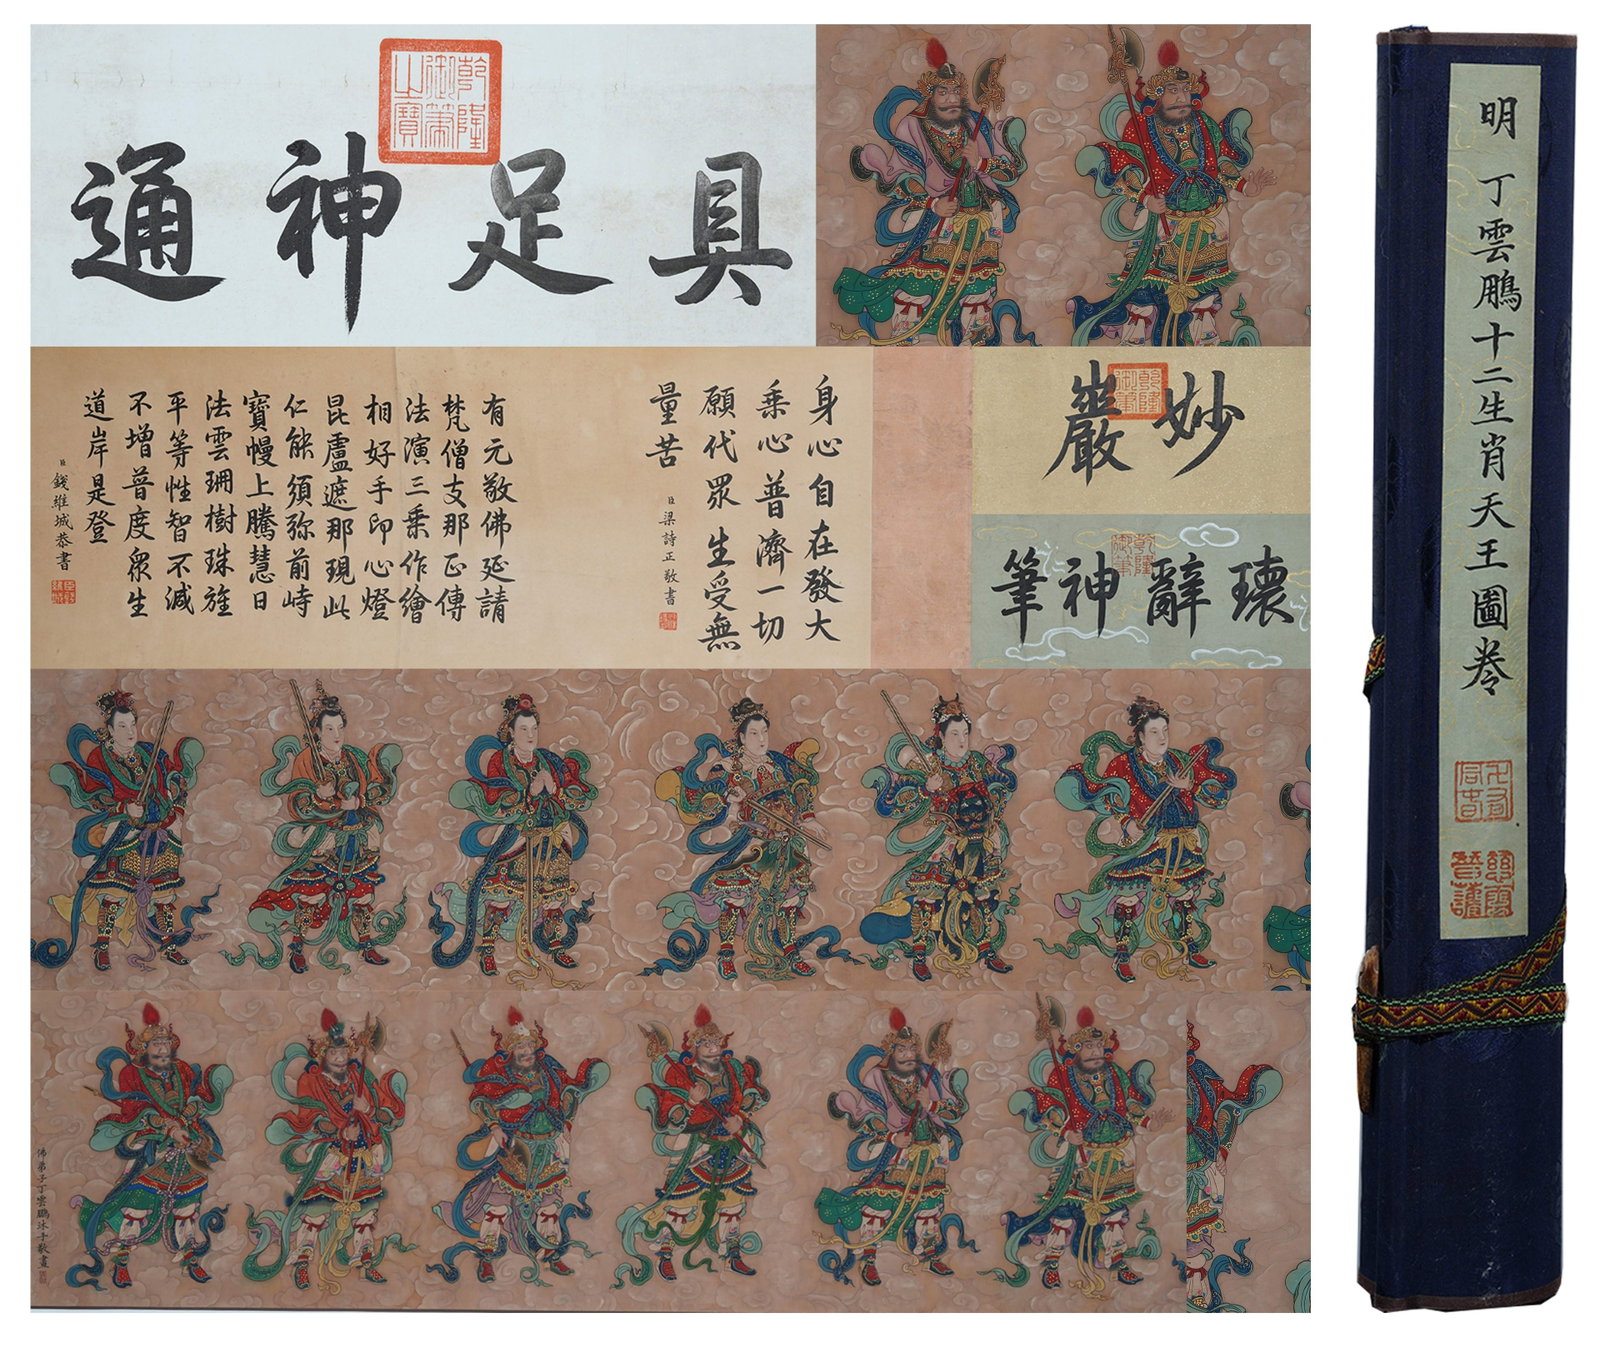 具足神通
乾隆
御筆
之寶
妙嚴
乾隆
御筆
瓌辭神筆
乾隆
御筆
身心自在發大
乘心普濟一切
願代眾生受無
量苦
臣梁詩正敬書
有元敬佛延請
梵僧支那正傳
法演三乘作繪
相好手印心燈
昆盧遮那現此
仁能須弥前峙
寶幔上騰慧日
法雲珊樹珠旌
平等性智不減
不增普度衆生
道岸是登
臣錢維城恭書
佛弟子丁雲鵬沐手敬畫
明 丁雲鵬十二生肖天王圖卷